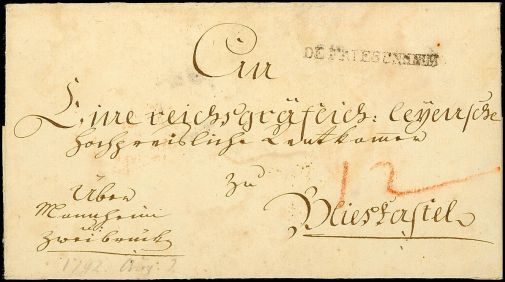 An
DE FRIESENHEIM
Eine reichsgräfeich: leyensche
Hochpreisliche Rentkamer
zu
12
Blieskastel
Über
Mannheim
u
Zweibrück
1792 Aug. 2